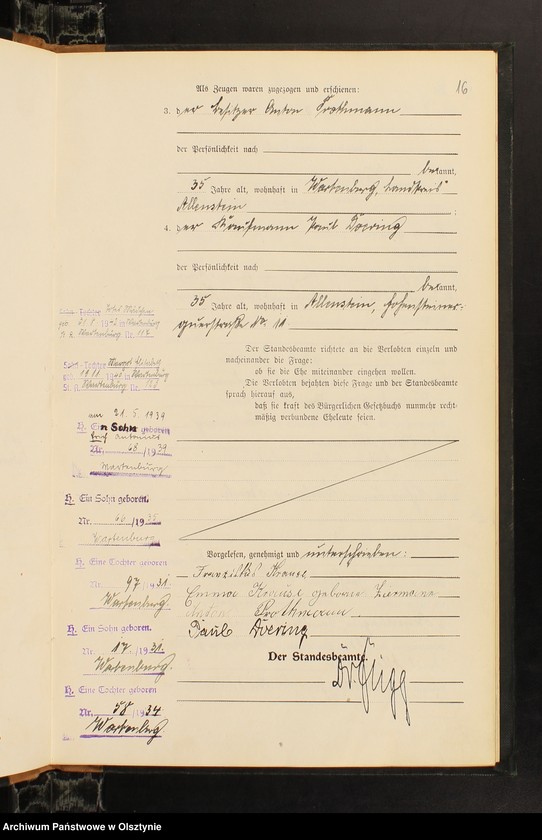 16
Als Zeugen waren zugezogen und erschienen:
3. der Besitzer Anton Grothmann
der Persönlichkeit nach
bekannt,
35 Jahre alt, wohnhaft in Wartenberg, Landkreis
Allenstein ;
4. der Kaufmann Paul Doering
der Persönlichkeit nach
bekannt,
35 Jahre alt, wohnhaft in Allenstein, Hohensteiner-
querstraße Nr. 11
Der Standesbeamte richtete an die Verlobten einzeln und
nacheinander die Frage:
ob sie die Ehe miteinander eingehen wollen.
Die Verlobten bejahten diese Frage und der Standesbeamte
sprach hierauf aus,
daß sie kraft des Bürgerlichen Gesetzbuchs nunmehr recht-
mäßig verbundene Eheleute seien.
Vorgelesen, genehmigt und unterschrieben:
Franziskus Krause
Emma Krause geborne
Anton Grothmann
Paul Doering
Der Standesbeamte.
Tochter
Wartenburg
Nr. 117
Tochter
Wartenburg Nr.
am 31.5 1939
H. Ein Sohn geboren
Nr. 68 /1939
Wartenburg
H. Ein Sohn geboren.
Nr. 66 /19
Wartenburg
H. Eine Tochter geboren
Nr. 97 /1931
Wartenberg.
H. Ein Sohn geboren.
Nr. 17 /1931.
Wartenberg.
H. Eine Tochter geboren
Nr. 58 /1934
Wartenberg
Archiwum Państwowe w Olsztynie